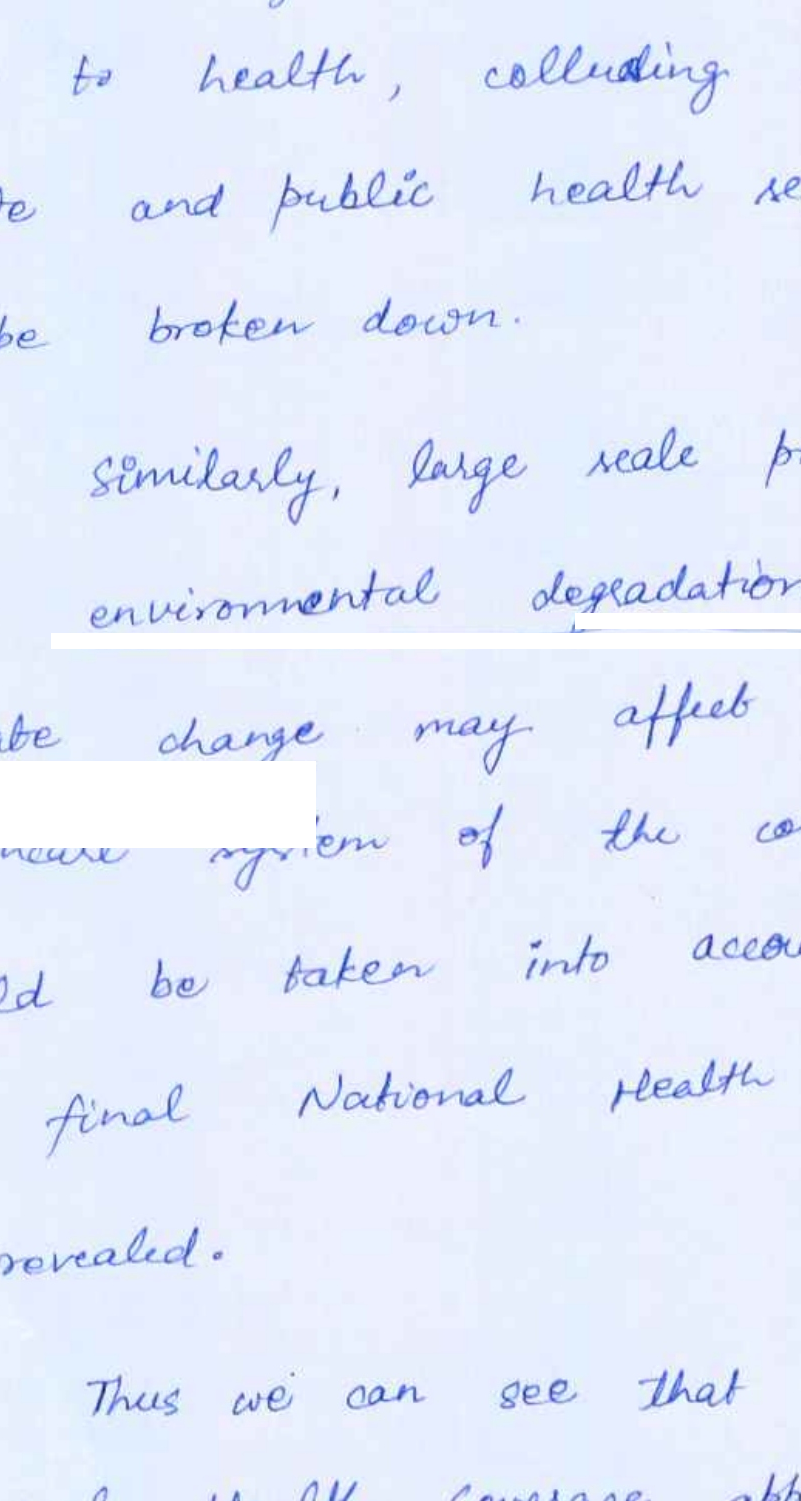 to health, colluding
and public health se
be broken down.
Similarly, large scale p
environmental degradation
change may affect
system of the co
be taken into accou
final National Health
revealed.
Thus we can see that
coverage